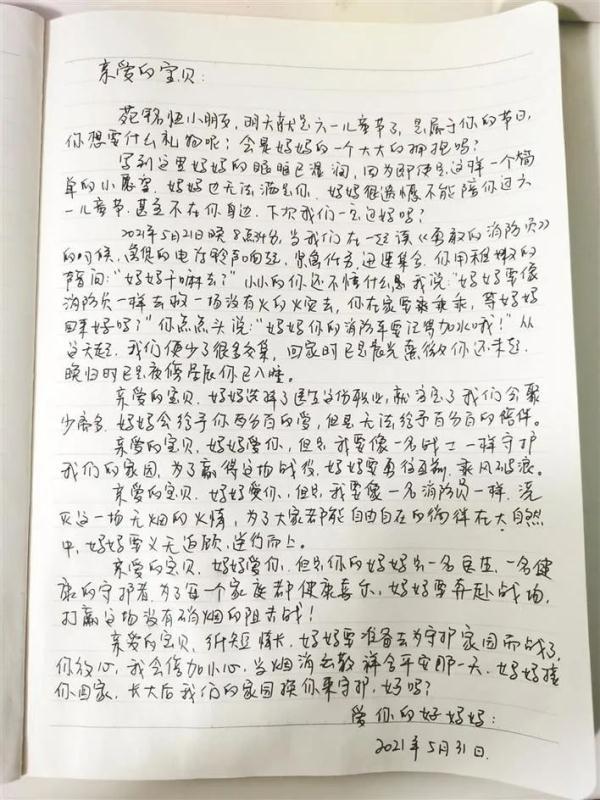 亲爱的宝贝：
苑铭恒小朋友，明天就是六一儿童节了，是属于你的节日，
你想要什么礼物呢？会是妈妈的一个大大的拥抱吗？
写到这里妈妈的眼眶已湿润，因为即使是这样一个简
单的小愿望，妈妈也无法满足你，妈妈很遗憾不能陪你过六
一儿童节，甚至不在你身边，下次我们一定过好吗？
2021年5月21日晚8点34分，当我们在一起读《勇敢的消防员》
的时候，急促的电话铃声响起，紧急任务迅速集合，你用稚嫩的
声音问："妈妈干嘛去？"小小的你还不懂什么是我说："妈妈要像
消防员一样去救一场没有火的火灾去，你在家要乖乖乖，等妈妈
回来好吗？"你点点头说："妈妈你的消防车要记得加水哦！"从
这天起，我们便少了很多交集，回家时已是晨光熹微你还未起，
晚归时已是夜倦星辰你已入睡。
亲爱的宝贝，妈妈选择了医生这份职业，就注定了我们会聚
少离多，妈妈会给予你百分百的爱，但是无法给予百分百的陪伴。
亲爱的宝贝，妈妈爱你，但是，我要像一名战士一样守护
我们的家园，为了赢得这场战役，妈妈要勇往直前，乘风破浪。
亲爱的宝贝，妈妈爱你，但是，我要像一名消防员一样，浇
灭这一场无烟的火情，为了大家都能自由自在的徜徉在大自然
中，妈妈要义无返顾，逆行而上。
亲爱的宝贝，妈妈爱你，但是你的妈妈是一名医生，一名健
康的守护者，为了每一个家庭都健康喜乐，妈妈要奔赴战场，
打赢这场没有硝烟的阻击战！
亲爱的宝贝，纸短情长，妈妈要准备去为守护家园而战了，
你放心，我会倍加小心，当烟消云散祥合平安那一天，妈妈接
你回家，长大后我们的家园换你来守护，好吗？
爱你的好妈妈：
2021年5月31日.